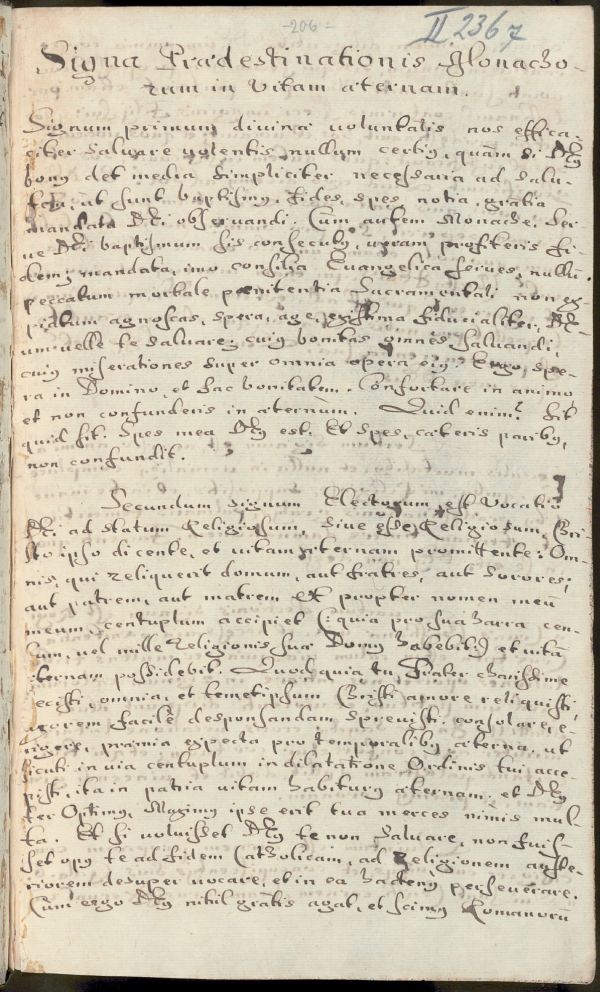 -206-
II 2367
Signa Praedestinationis Monacho-
rum in vitam aeternam.
Signum primum divinae voluntatis nos effica-
citer salvare volentis nullum certiq, quam si Dq
bonq det media simpliciter necessaria ad salu-
tem, ut sunt baptismq, fides, spes, notia, gratia
mandata Dei observandi. Cum autem Monache, Ser
ve Dei baptismum sis consecutq, veram profiteris fi-
dem, mandata, imo consilia Euangelica serves, nullū
peccatum mortale paenitentia Sacramentali non ex-
piatum agnoscas, spera, age, existima fiducialiter, De-
um velle te salvare, cuiq bonitas omnes salvandi,
cuiq miserationes super omnia opera eiq. Ergo, spe-
ra in Domino, et fac bonitatem. Confortare in animo,
et non confunderis in aeternum. Quid enim? sit
quid sit. Spes mea Dq est. Et spes, caeteris paribq,
non confundit.
Secundum signum Electorum, est Vocatio
Dei ad statum Religiosum, sive esse Religiosum, Chri-
sto ipso dicente, et vitam aeternam promittente: Om-
nis, qui reliquerit domum, aut fratres, aut sorores,
aut patrem, aut matrem etc propter nomen meū
meum, centuplum accipiet (: quia pro sua barra cen-
tum, vel mille Religionis suae Domq habebit :) et vitā
aeternam possidebit. Quod quia tu, Frater charissime
fecisti, omnia, et temetipsum Christi amore reliquisti,
uxorem facile desponsandam sprevisti, consolare, e-
rigere, praemia expecta pro temporalibq aeterna, ut
sicuti in via centuplum in dilatatione Ordinis tui acce-
pisti, ita in patria vitam habiturq aeternam; et Dq
ter Optimq, Maximq ipse erit tua merces nimis mul-
ta. Et si voluisset Dq te non salvare, non fuis-
set opq te ad fidem Catholicam, ad Religionem auste-
riorem desuper vocare, et in ea hactenq perseverare.
Cum ergo Dq nihil gratis agat, et scimq Romanorū